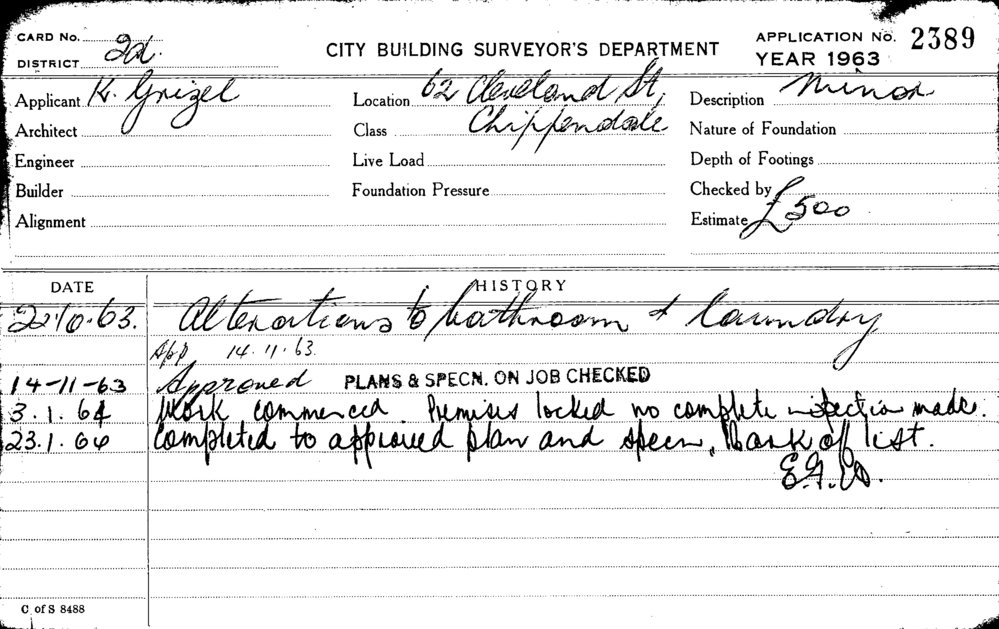 CARD No. 2d. CITY BUILDING SURVEYOR'S DEPARTMENT APPLICATION No. 2389
DISTRICT YEAR 1963
Applicant K. Grizel Location 62 Cleveland St, Description Minor
Architect Class Chippendale Nature of Foundation
Engineer Live Load Depth of Footings
Builder Foundation Pressure Checked by
Alignment Estimate £500
DATE HISTORY
22.10.63. Alterations to bathroom & laundry
App 14.11.63.
14-11-63 Approved PLANS & SPECN. ON JOB CHECKED
3.1.64 Work commenced Premises locked no complete inspection made.
23.1.64 Completed to approved plan and specn,
C. of S 8488